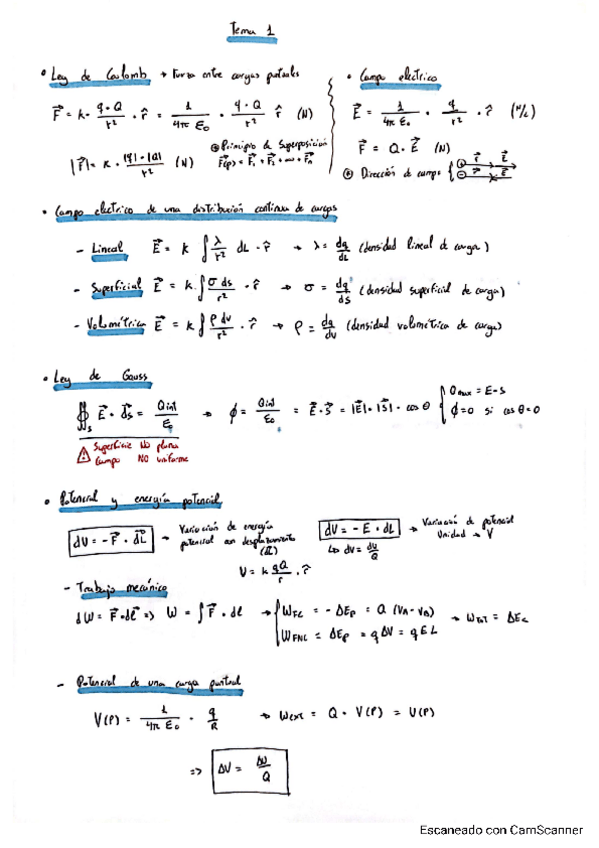 Tema 1
• Ley de Coulomb → Fuerza entre cargas puntuales
F⃗ = k · q · Q / r² · r̂ = 1 / 4π ε₀ · q · Q / r² r̂ (N)
⊛ Principio de Superposición
|F⃗| = k · |q| · |Q| / r² (N) F⃗(P) = F⃗₁ + F⃗₂ + ∞ + F⃗n
• Campo electrico
E⃗ = 1 / 4π ε₀ · q / r² · r̂ (N/C)
F⃗ = Q · E⃗ (N)
⊛ Dirección de campo { ⊕ r⃗ E⃗ ⊖
• Campo electrico de una distribución continua de cargas
- Lineal E⃗ = k ∫ λ / r² dL · r̂ → λ = dq / dL (densidad lineal de carga)
- Superficial E⃗ = k · ∫ σ ds / r² · r̂ → σ = dq / ds (densidad superficial de carga)
- Volumétrica E⃗ = k ∫ ρ dv / r² · r̂ → ρ = dq / dv (densidad volumétrica de carga)
• Ley de Gauss
∯s E⃗ · ds⃗ = Qint / ε₀ → ϕ = Qint / ε₀ = E⃗ · S⃗ = |E⃗| · |S⃗| · cos θ { Qmax = E · S
ϕ = 0 si cos θ = 0
⚠ Superficie NO plana
Campo NO uniforme
• Potencial y energía potencial
dU = - F⃗ · dL⃗ → Variación de energía potencial en desplazamiento (dL)
dV = - E · dL → Variación de potencial
Unidad → V
↳ dV = dU / Q
U = k qQ / r · r̂
- Trabajo mecánico
dW = F⃗ · dl⃗ => W = ∫ F⃗ · dl → { WFC = - ΔEp = Q (VA - VB)
WFNC = ΔEp = q ΔV = q E L → WTOT = ΔEc
- Potencial de una carga puntual
V(P) = 1 / 4π ε₀ · q / R → Wext = Q · V(P) = U(P)
=> ΔV = ΔU / Q
Escaneado con CamScanner